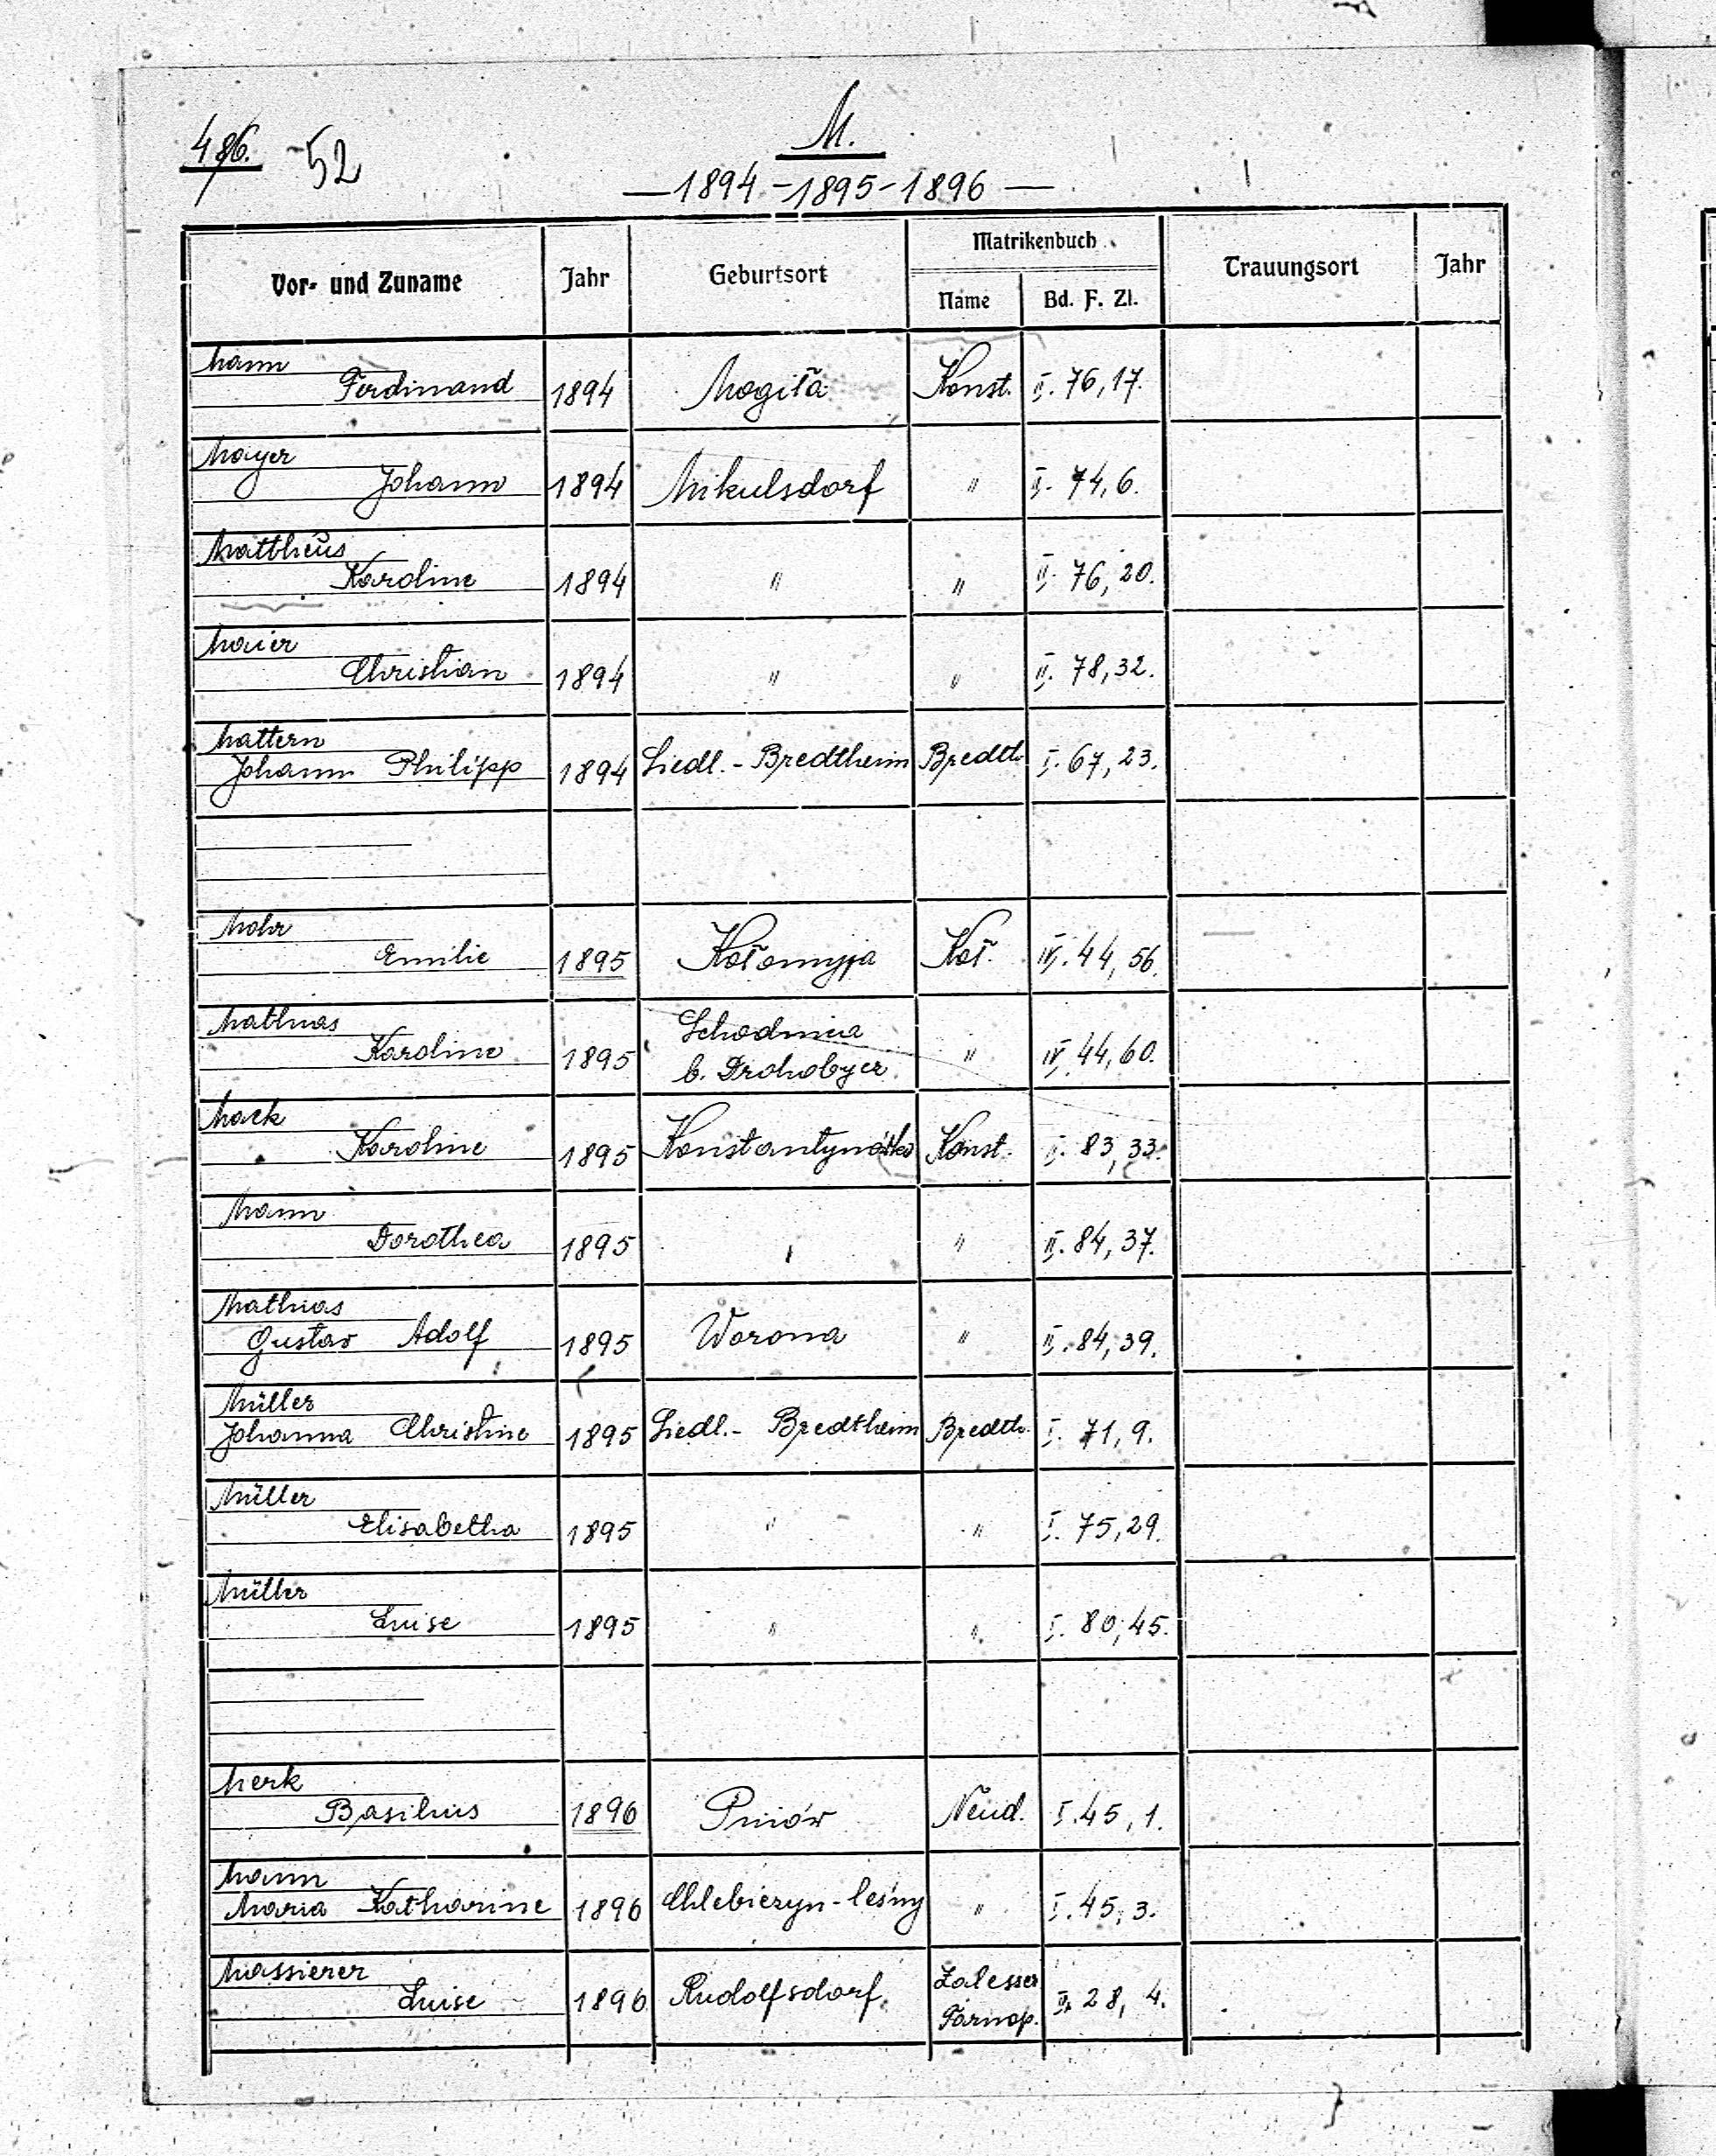 486. 52
M.
— 1894 - 1895 - 1896 —
Vor- und Zuname Jahr Geburtsort Matrikenbuch Trauungsort Jahr
Name Bd. F. Zl.
Mann
Ferdinand 1894 Mogiła Konst. II. 76, 17.
Mayer
Johann 1894 Mikulsdorf " II. 74, 6.
Mattheus
Karoline 1894 " " II. 76, 20.
Maier
Christian 1894 " " II. 78, 32.
Mattern
Johann Philipp 1894 Siedl. - Bredtheim Bredth. I. 67, 23.
Mohr
Emilie 1895 Kołomyja Koł. IV. 44, 56.
Mathias
Karoline 1895 Schodnica
b. Drohobycz " IV. 44, 60.
Mack
Karoline 1895 Konst. II. 83, 33.
Mann
Dorothea 1895 " " II. 84, 37.
Mathias
Gustav Adolf 1895 Worona " II. 84, 39.
Müller
Johanna Christine 1895 Siedl. - Bredtheim Bredth. I. 71, 9.
Müller
Elisabetha 1895 " " I. 75, 29.
Müller
Luise 1895 " " I. 80, 45.
Merk
Basilius 1896 Pniów Neud. I. 45, 1.
Mann
Maria Katharine 1896 Chlebiczyn - leśny " I. 45, 3.
Massierer
Luise 1896 Rudolfsdorf Zalesser
Tarnop. II. 28, 4.